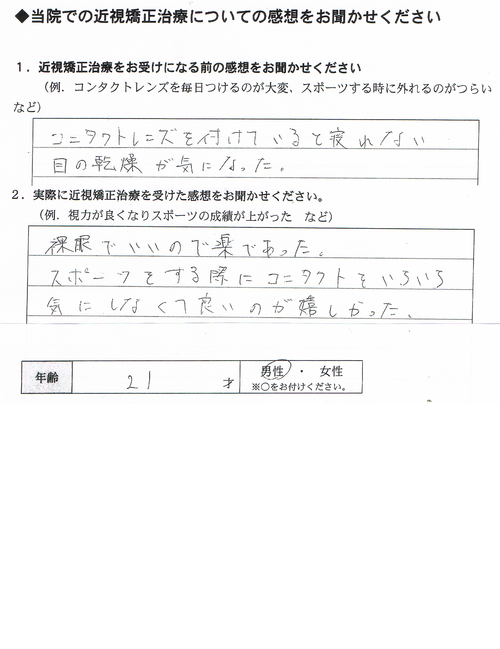 ◆当院での近視矯正治療についての感想をお聞かせください
１．近視矯正治療をお受けになる前の感想をお聞かせください
（例．コンタクトレンズを毎日つけるのが大変、スポーツする時に外れるのがつらい
など）
コンタクトレンズを付けていると寝れない
目の乾燥が気になった。
２．実際に近視矯正治療を受けた感想をお聞かせください。
（例．視力が良くなりスポーツの成績が上がった　など）
裸眼でいいので楽であった。
スポーツをする際にコンタクトをいちいち
気にしなくて良いのが嬉しかった。
年齢 21 才 男性 ・ 女性
※○をお付けください。